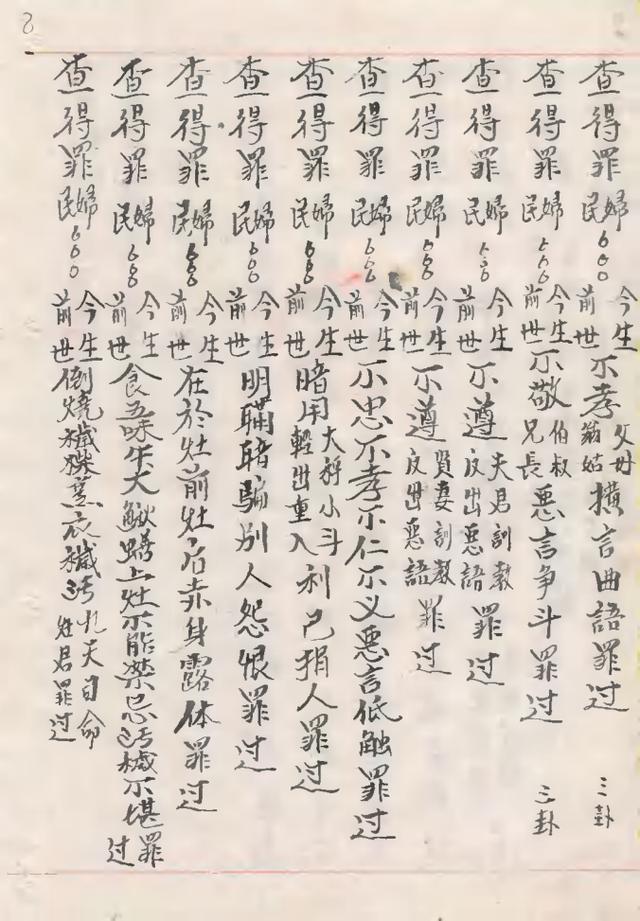 8
查得罪民婦ססס今生前世不孝父母翁姑橫言曲語罪过 三卦
查得罪民婦ססס今生前世不敬伯叔兄長惡言争斗罪过 三卦
查得罪民婦ססס今生前世不遵夫君訓教反出惡語罪过
查得罪民婦ססס今生前世不遵賢妻訓教反出惡語罪过
查得罪民婦ססס今生前世不忠不孝不仁不义惡言低触罪过
查得罪民婦ססס今生前世暗用大秤小斗輕出重入利己捐人罪过
查得罪民婦ססס今生前世明瞞暗騙别人怨恨罪过
查得罪民婦ססס今生前世在於灶前灶后赤身露体罪过
查得罪民婦ססס今生前世食五味牛犬鰍鱔上灶不能禁忌污穢不堪罪过
查得罪民婦ססס今生前世倒燒穢柴熏衣穢污九天司命灶君罪过